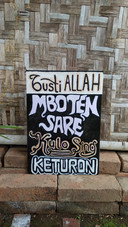 Gusti ALLAH
MBOTEN
SARE
Kulo Sing
KETURON